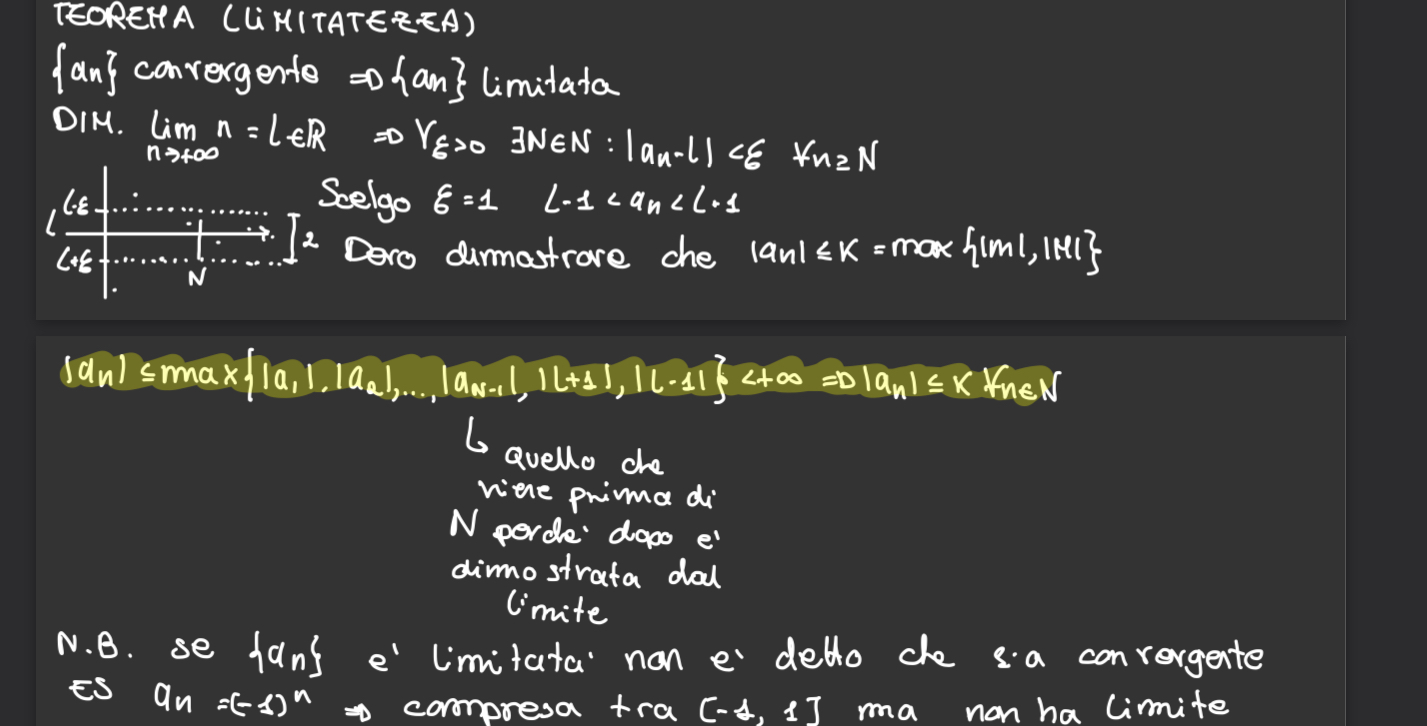 TEOREMA (LIMITATEZZA)
{an} convergente => {an} limitata
DIM. lim n = L ∈ ℝ => ∀ε>0 ∃N∈N : |an-L| < ε ∀n≥N
n→+∞
L-ε
L
L+ε
N
2
Scelgo ε = 1 L-1 < an < L+1
Devo dimostrare che |an| ≤ K = max {|m|, |M|}
|an| ≤ max{|a1|, |a2|, ..., |aN-1|, |L+1|, |L-1|} < +∞ => |an| ≤ K ∀n∈N
↳ quello che
viene prima di
N perché dopo e'
dimostrata dal
limite
N.B. se {an} e' limitata non e' detto che sia convergente
ES an = (-1)^n => compresa tra [-1, 1] ma non ha limite